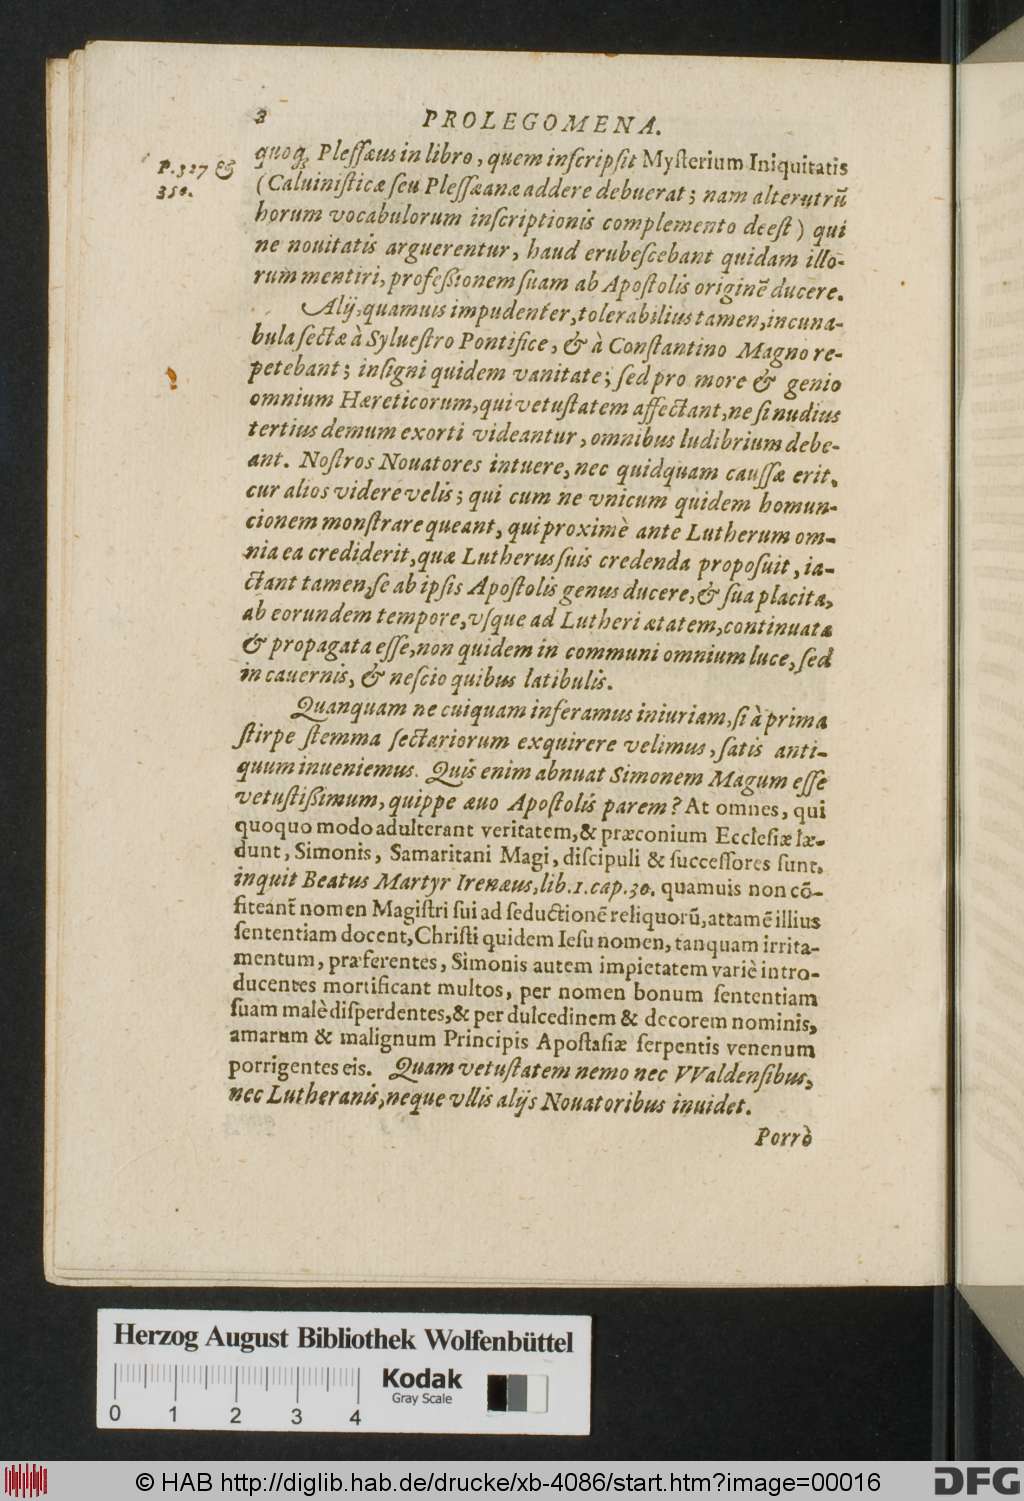 2 PROLEGOMENA.
P. 327 &
350.
quoq; Plessæus in libro, quem inscripsit Mysterium Iniquitatis
(Caluinisticæ seu Plessæanæ addere debuerat; nam alterutrũ
horum vocabulorum inscriptionis complemento deest) qui
ne nouitatis arguerentur, haud erubescebant quidam illo-
rum mentiri, professionem suam ab Apostolis originẽ ducere.
Alij, quamuis impudenter, tolerabilius tamen, incuna-
bula sectæ à Syluestro Pontifice, & à Constantino Magno re-
petebant; insigni quidem vanitate; sed pro more & genio
omnium Hæreticorum, qui vetustatem affectant, ne si nudius
tertius demum exorti videantur, omnibus ludibrium debe-
ant. Nostros Nouatores intuere, nec quidquam caussæ erit,
cur alios videre velis; qui cum ne vnicum quidem homun-
cionem monstrare queant, qui proximè ante Lutherum om-
nia ea crediderit, quæ Lutherus suis credenda proposuit, ia-
ctant tamen, se ab ipsis Apostolis genus ducere, & sua placita,
ab eorundem tempore, vsque ad Lutheri ætatem, continuata
& propagata esse, non quidem in communi omnium luce, sed
in cauernis, & nescio quibus latibulis.
Quanquam ne cuiquam inferamus iniuriam, si à prima
stirpe stemma sectariorum exquirere velimus, satis anti-
quum inueniemus. Quis enim abnuat Simonem Magum esse
vetustissimum, quippe æuo Apostolis parem? At omnes, qui
quoquo modo adulterant veritatem, & præconium Ecclesiæ læ-
dunt, Simonis, Samaritani Magi, discipuli & successores sunt,
inquit Beatus Martyr Irenæus, lib. 1. cap. 30. quamuis non cõ-
fiteant̃ nomen Magistri sui ad seductionẽ reliquorũ, attamẽ illius
sententiam docent, Christi quidem Iesu nomen, tanquam irrita-
mentum, præferentes, Simonis autem impietatem variè intro-
ducentes mortificant multos, per nomen bonum sententiam
suam malè disperdentes, & per dulcedinem & decorem nominis,
amarum & malignum Principis Apostasiæ serpentis venenum
porrigentes eis. Quam vetustatem nemo nec VValdensibus,
nec Lutheranis, neque vllis alijs Nouatoribus inuidet.
Porrò
Herzog August Bibliothek Wolfenbüttel
0 1 2 3 4
Kodak
Gray Scale
© HAB http://diglib.hab.de/drucke/xb-4086/start.htm?image=00016
DFG